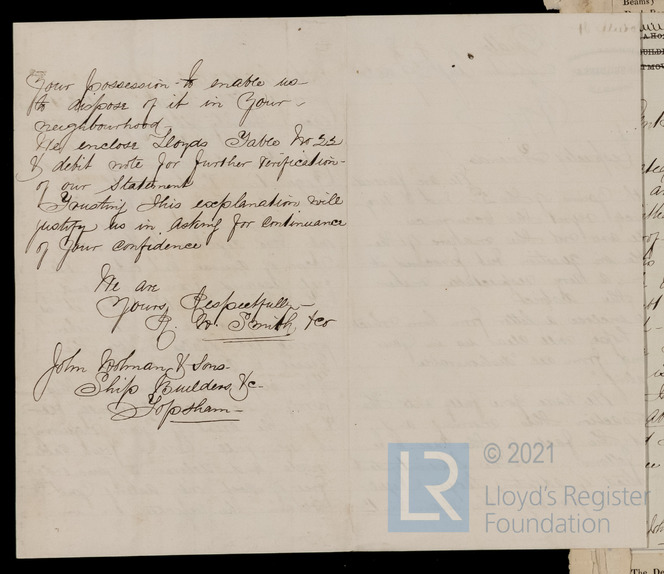 Your possession to enable us
to dispose of it in Your
neighbourhood
We enclose Lloyds Table No 22
& debit note for further verification
of our Statement
Trusting this explanation will
justify us in asking for continuance
of Your confidence
We are
Yours Respectfully
R. W. Smith & Co
John Holman & Sons
Ship Builders &c
Topsham
© 2021
LR
Lloyd's Register
Foundation
Beams)
The De